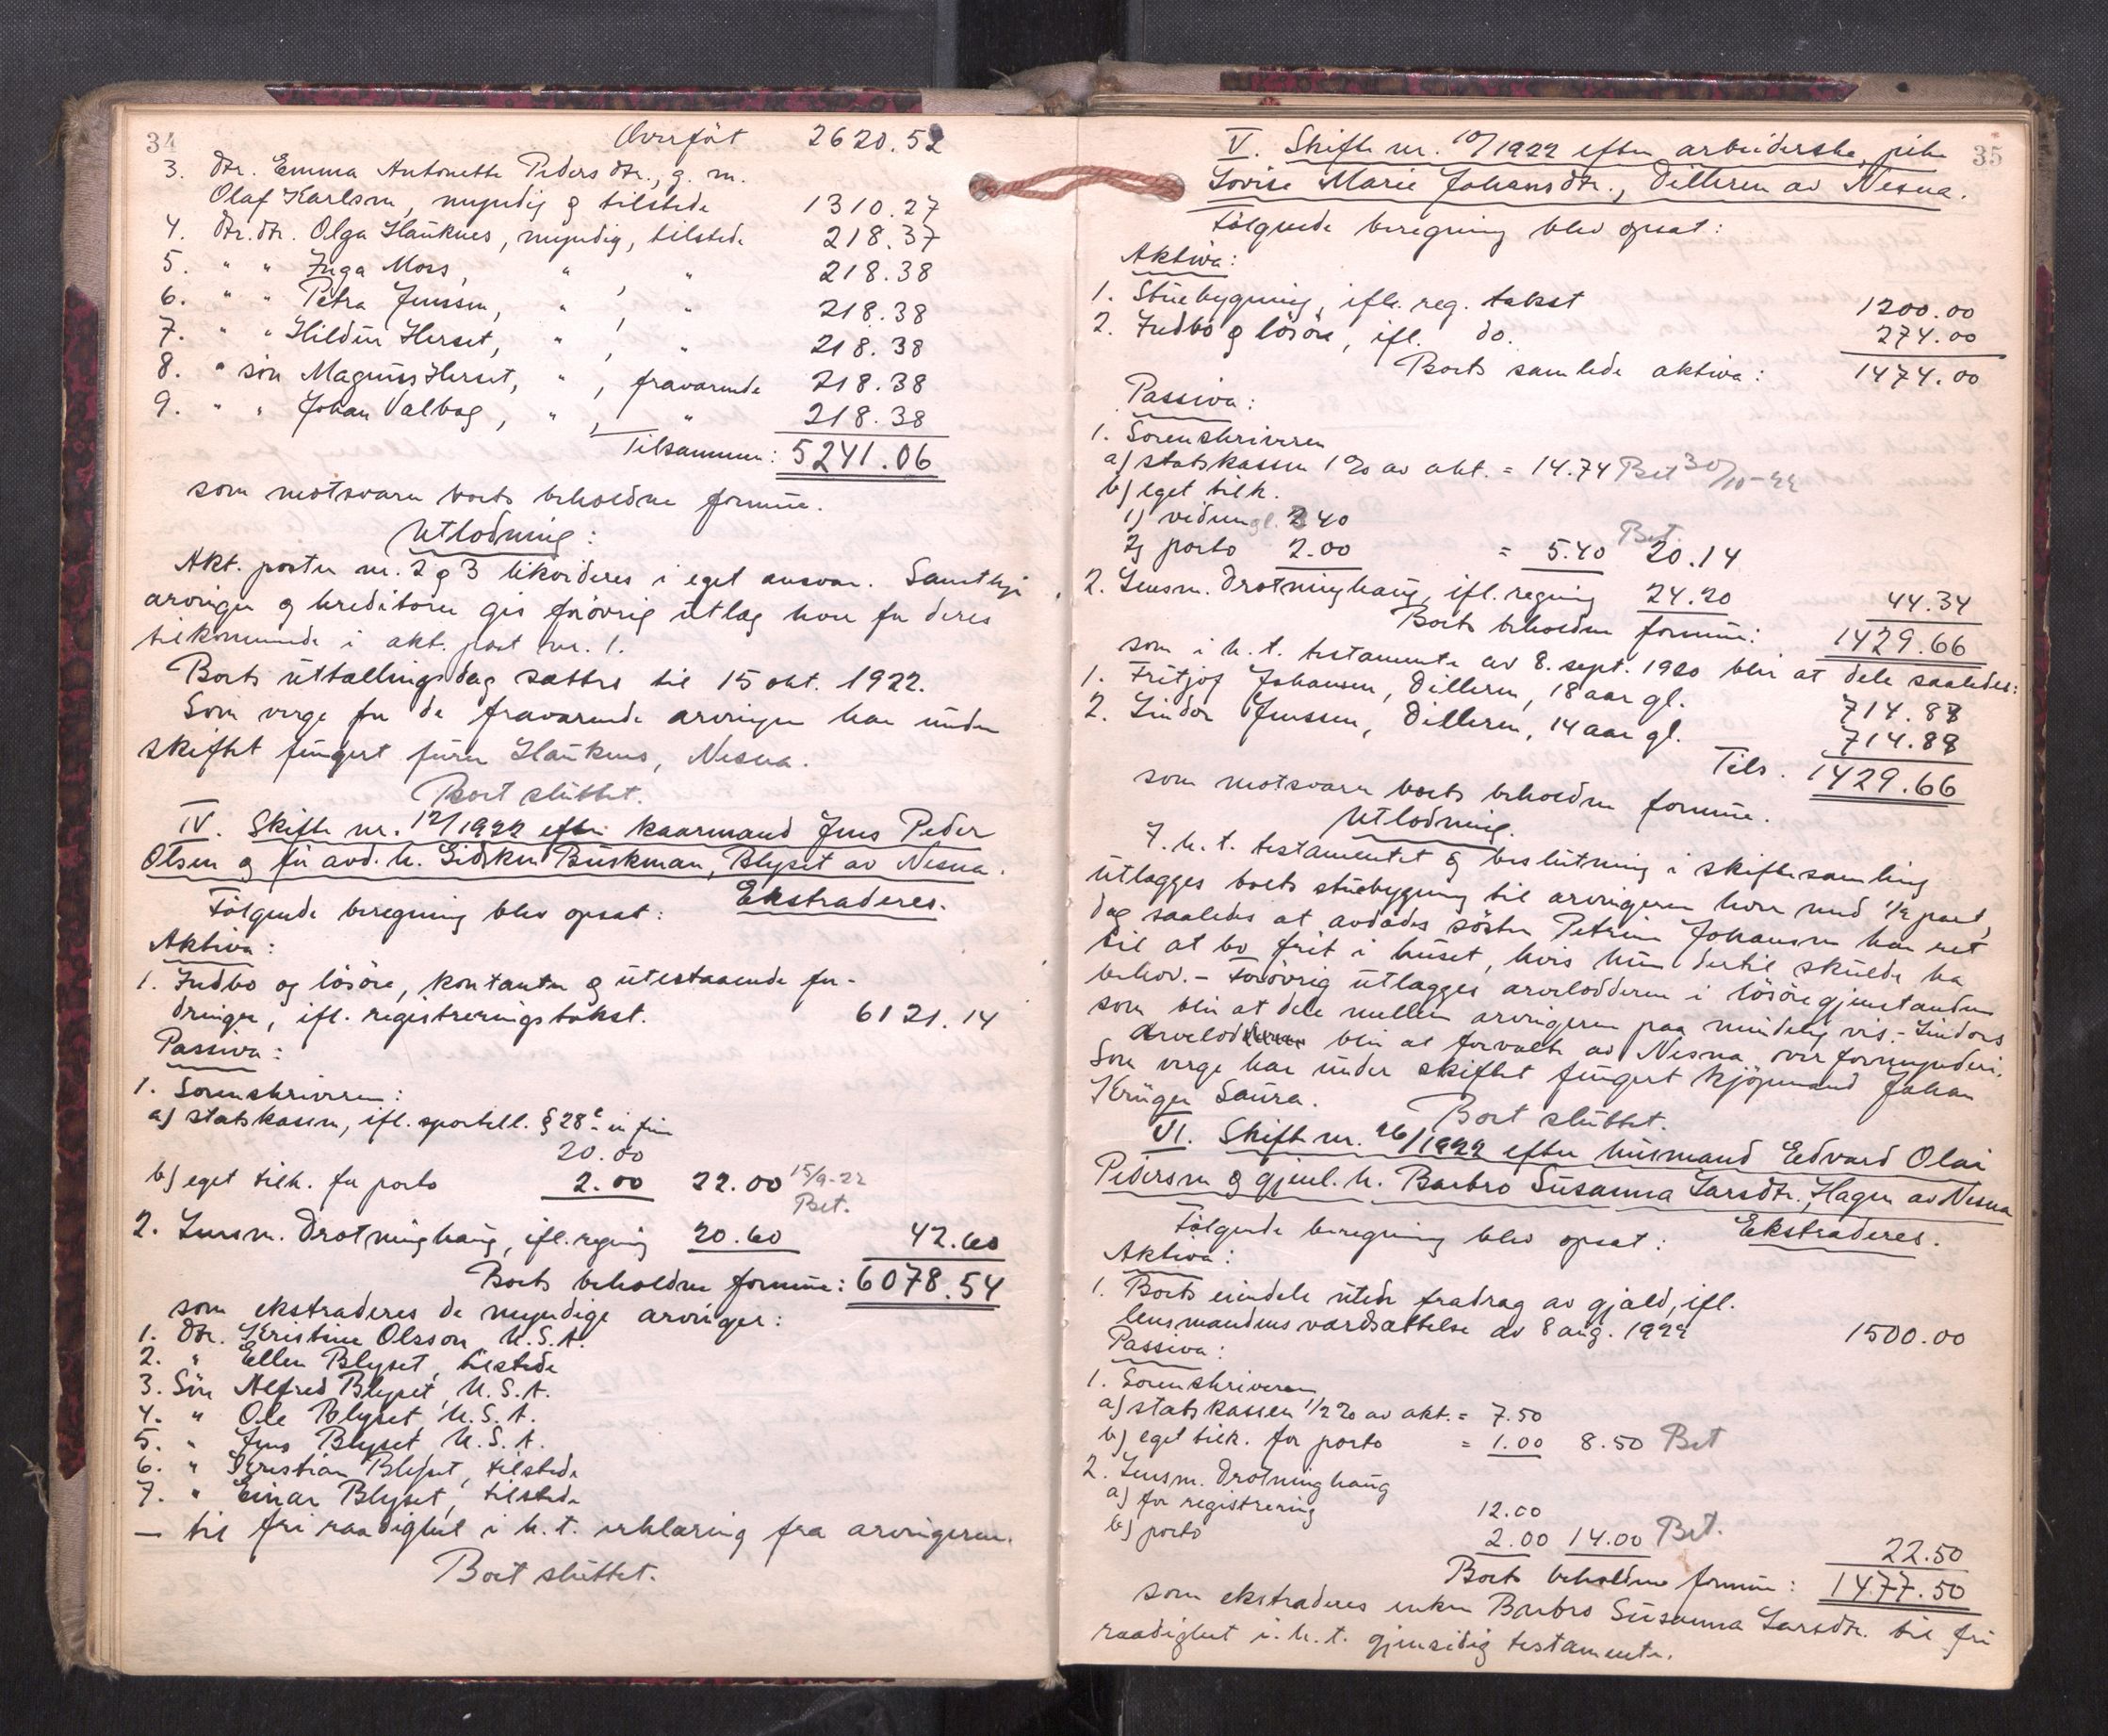 34
Overført 2620.52
3. Dtr. Emma Antonette Pedersdtr., g. m.
Olaf Karlsen, myndig & tilstede 1310.27
4. dtr. dtr. Olga Hauknes, myndig, tilstede 218.37
5. " " Inga Moss, " " 218.38
6. " " Petra Jenssen, " , " 218.38
7. " " Hildur Herset, " , " 218.38
8. " søn Magnus Herset, " , fraværende 218.38
9. " " Johan Valbog, " , " 218.38
Tilsammen: 5241.06
som motsvarer boets beholdne formue.
Utlodning:
Akt. poster nr. 2 & 3 likvideres i eget ansvar. Samtlige
arvinger & kreditorer gis forøvrig utlæg hver for deres
tilkommende i akt. post nr. 1.
Boets uttællingsdag sættes til 15 okt. 1922.
Som verge for de fraværende arvinger har under
skiftet fungert furer Hauknes, Nesna.
Boet sluttet.
IV. Skifte nr. 12/1922 efter kaarmand Jens Peder
Olsen & før avd. h. Gidsken Buskman, Blyset av Nesna.
Følgende beregning blev opsat: Ekstraderes.
Aktiva:
1. Indbo og løsøre, kontanter & utestaaende for-
dringer, ifl. registreringstakst. 6121.14
Passiva:
1. Sorenskriveren:
a) statskassen, ifl. sportell. § 28 c in fin
20.00
b) eget tilk. for porto 2.00 22.00 15/9-22
Bet.
2. Lensm. Drotninghaug, ifl. regning 20.60 42.60
Boets beholdne formue: 6078.54
som ekstraderes de myndige arvinger:
1. Dtr. Kristine Olsson, U.S.A.
2. " Ellen Blyset, tilstede
3. Søn Alfred Blyset, U.S.A.
4. " Ole Blyset, U.S.A.
5. " Jens Blyset, U.S.A.
6. " Kristian Blyset, tilstede
7. " Einar Blyset, tilstede
— til fri raadighet i h. t. erklæring fra arvingerne.
Boet sluttet.
35
V. Skifte nr. 10/1922 efter arbeiderske, pike
Lovise Marie Johansdtr., Dilleren av Nesna.
Følgende beregning blev opsat:
Aktiva:
1. Stuebygning, ifl. reg. takst 1200.00
2. Indbo & løsøre, ifl. do. 274.00
Boets samlede aktiva: 1474.00
Passiva:
1. Sorenskriveren
a) statskassen 1 % av akt. = 14.74 Bet 30/10-22
b) eget tilk.
1) vidnegl. 3.40
2) porto 2.00 = 5.40 Bet. 20.14
2. Lensm. Drotninghaug, ifl. regning 24.20 44.34
Boets beholdne formue: 1429.66
som i h. t. testamente av 8. sept. 1920 blir at dele saaledes:
1. Fritjof Johansen, Dilleren, 18 aar gl. 714.83
2. Lindor Jenssen, Dilleren, 14 aar gl. 714.83
Tils. 1429.66
som motsvarer boets beholdne formue.
Utlodning.
I h. t. testamentet & beslutning i skiftesamling
utlægges boets stuebygning til arvingerne hver med 1/2 part,
dog saaledes at avdødes søster Petrine Johansen har ret
til at bo frit i huset, hvis hun dertil skulde ha
behov. - Forøvrig utlægges arvelodderne i løsøregjenstanden
som blir at dele mellem arvingerne paa mindelig vis. - Lindors
arvelod blir at forvalte av Nesna overformynderi.
Som verge har under skiftet fungert kjøpmand Johan
Krüger Saura.
Boet sluttet.
VI. Skifte nr. 26/1922 efter husmand Edvard Olai
Pedersen & gjenl. h. Barbro Susanna Larsdtr., Hagen av Nesna
Følgende beregning blev opsat: Ekstraderes.
Aktiva:
1. Boets eiendele uten fradrag av gjæld, ifl.
lensmandens værdsættelse av 8 aug. 1922 1500.00
Passiva:
1. Sorenskriveren
a) statskassen 1/2 % av akt. = 7.50
b) eget tilk. for porto = 1.00 8.50 Bet
2. Lensm. Drotninghaug
a) for registrering 12.00
b) porto 2.00 14.00 Bet. 22.50
Boets beholdne formue: 1477.50
som ekstraderes enken Barbro Susanna Larsdtr. til fri
raadighet i. h. t. gjensidig testamente.